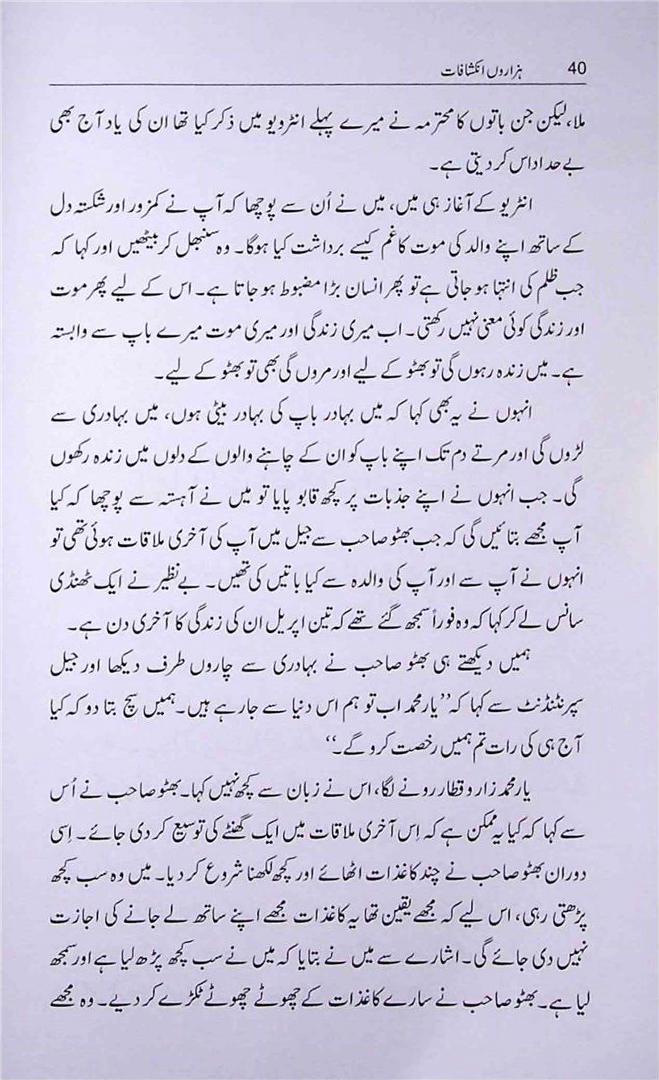 40 ہزاروں انکشافات
ملا، لیکن جن باتوں کا محترمہ نے میرے پہلے انٹرویو میں ذکر کیا تھا ان کی یاد آج بھی
بے حد اداس کر دیتی ہے۔
انٹریو کے آغاز ہی میں، میں نے اُن سے پوچھا کہ آپ نے کمزور اور شکستہ دل
کے ساتھ اپنے والد کی موت کا غم کیسے برداشت کیا ہوگا۔ وہ سنبھل کر بیٹھیں اور کہا کہ
جب ظلم کی انتہا ہو جاتی ہے تو پھر انسان بڑا مضبوط ہو جاتا ہے۔ اس کے لیے پھر موت
اور زندگی کوئی معنی نہیں رکھتی۔ اب میری زندگی اور میری موت میرے باپ سے وابستہ
ہے۔ میں زندہ رہوں گی تو بھٹو کے لیے اور مروں گی بھی تو بھٹو کے لیے۔
انہوں نے یہ بھی کہا کہ میں بہادر باپ کی بہادر بیٹی ہوں، میں بہادری سے
لڑوں گی اور مرتے دم تک اپنے باپ کو ان کے چاہنے والوں کے دلوں میں زندہ رکھوں
گی۔ جب انہوں نے اپنے جذبات پر کچھ قابو پایا تو میں نے آہستہ سے پوچھا کہ کیا
آپ مجھے بتائیں گی کہ جب بھٹو صاحب سے جیل میں آپ کی آخری ملاقات ہوئی تھی تو
انہوں نے آپ سے اور آپ کی والدہ سے کیا باتیں کی تھیں۔ بے نظیر نے ایک ٹھنڈی
سانس لے کر کہا کہ وہ فوراً سمجھ گئے تھے کہ تین اپریل ان کی زندگی کا آخری دن ہے۔
ہمیں دیکھتے ہی بھٹو صاحب نے بہادری سے چاروں طرف دیکھا اور جیل
سپرنٹنڈنٹ سے کہا کہ ”یار محمد اب تو ہم اس دنیا سے جا رہے ہیں۔ ہمیں سچ بتا دو کہ کیا
آج ہی کی رات تم ہمیں رخصت کرو گے۔“
یار محمد زار و قطار رونے لگا، اس نے زبان سے کچھ نہیں کہا۔ بھٹو صاحب نے اُس
سے کہا کہ کیا یہ ممکن ہے کہ اِس آخری ملاقات میں ایک گھنٹے کی توسیع کر دی جائے۔ اِسی
دوران بھٹو صاحب نے چند کاغذات اٹھائے اور کچھ لکھنا شروع کر دیا۔ میں وہ سب کچھ
پڑھتی رہی، اس لیے کہ مجھے یقین تھا یہ کاغذات مجھے اپنے ساتھ لے جانے کی اجازت
نہیں دی جائے گی۔ اشارے سے میں نے بتایا کہ میں نے سب کچھ پڑھ لیا ہے اور سمجھ
لیا ہے۔ بھٹو صاحب نے سارے کاغذات کے چھوٹے چھوٹے ٹکڑے کر دیے۔ وہ مجھے